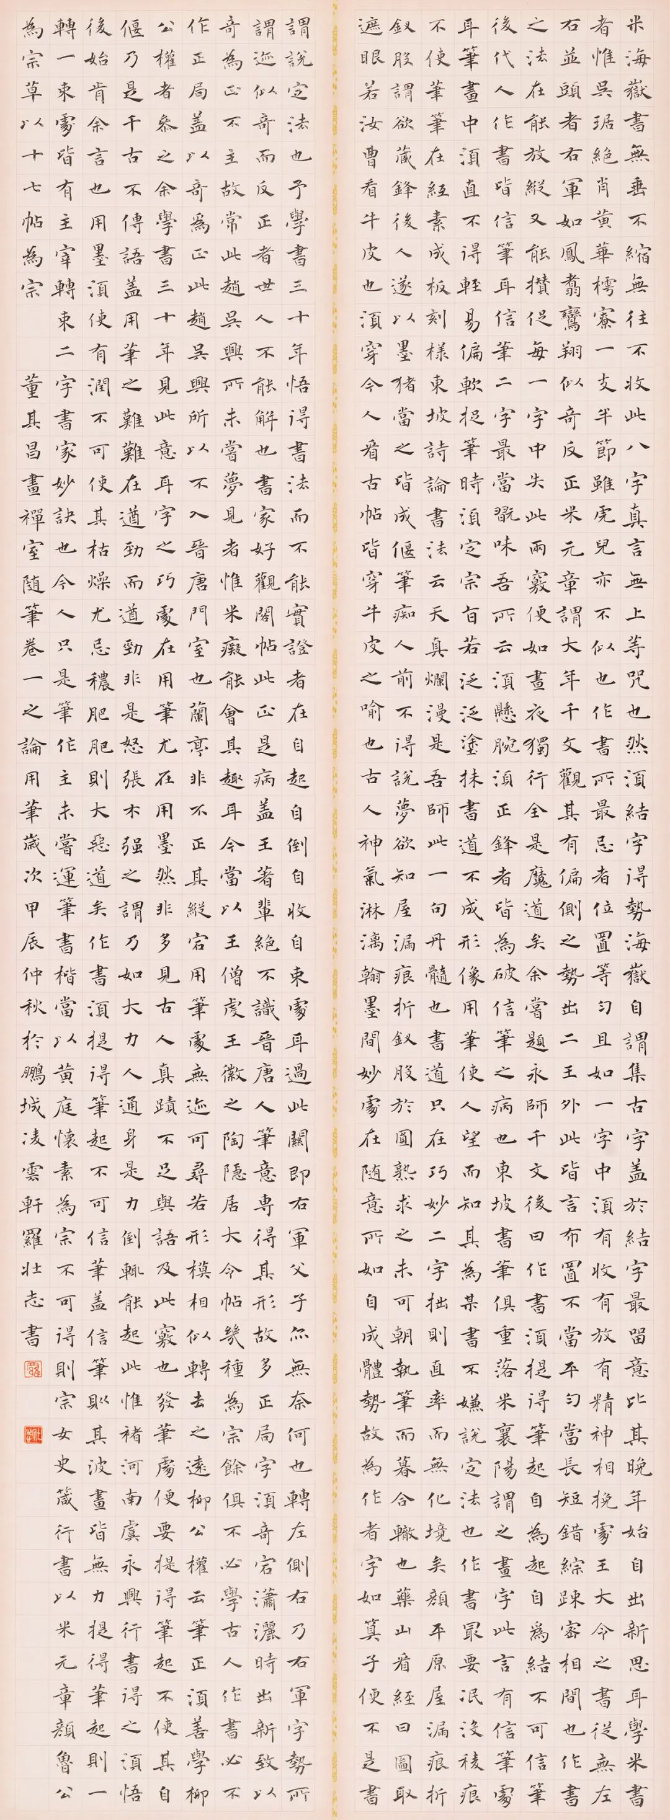 米海嶽書無垂不縮無往不收此八字真言無上等咒也然須結字得勢海嶽自謂集古字蓋於結字最留意比其晚年始自出新思耳學米書
者惟吳琚絕肖黃華樗寮一支半節雖虎兒亦不似也作書所最忌者位置等勻且如一字中須有收有放有精神相挽處王大令之書從無左
右並頭者右軍如鳳翥鸞翔似奇反正米元章謂大年千文觀其有偏側之勢出二王外此皆言布置不當平勻當長短錯綜踈密相間也作書
之法在能放縱又能攢促每一字中失此兩竅便如晝夜獨行全是魔道矣余嘗題永師千文後曰作書須提得筆起自為起自為結不可信筆
後代人作書皆信筆耳信筆二字最當翫味吾所云須懸腕須正鋒者皆為破信筆之病也東坡書筆俱重落米襄陽謂之畫字此言有信筆處
耳筆畫中須直不得輕易偏軟捉筆時須定宗旨若泛泛塗抹書道不成形像用筆使人望而知其為某書不嫌說定法也作書最要泯沒稜痕
不使筆筆在經素成板刻樣東坡詩論書法云天真爛漫是吾師此一句丹髓也書道只在巧妙二字拙則直率而無化境矣顏平原屋漏痕折
釵股謂欲藏鋒後人遂以墨豬當之皆成偃筆痴人前不得說夢欲知屋漏痕折釵股於圓熟求之未可朝執筆而暮合轍也藥山看經曰圖取
遮眼若汝曹看牛皮也須穿今人看古帖皆穿牛皮之喻也古人神氣淋漓翰墨間妙處在隨意所如自成體勢故為作者字如算子便不是書
謂說定法也予學書三十年悟得書法而不能實證者在自起自倒自收自束處耳過此關即右軍父子亦無奈何也轉左側右乃右軍字勢所
謂迹似奇而反正者世人不能解也書家好觀閣帖此正是病蓋王著輩絕不識晉唐人筆意專得其形故多正局字須奇宕瀟灑時出新致以
奇為正不主故常此趙吳興所未嘗夢見者惟米癡能會其趣耳今當以王僧虔王徽之陶隱居大令帖幾種為宗餘俱不必學古人作書必不
作正局蓋以奇為正此趙吳興所以不入晉唐門室也蘭亭非不正其縱宕用筆處無迹可尋若形模相似轉去之遠柳公權云筆正須善學柳
公權者參之余學書三十年見此意耳字之巧處在用筆尤在用墨然非多見古人真蹟不足與語及此竅也發筆處便要提得筆起不使其自
偃乃是千古不傳語蓋用筆之難難在遒勁而遒勁非是怒張木强之謂乃如大力人通身是力倒輒能起此惟褚河南虞永興行書得之須悟
後始肯余言也用墨須使有潤不可使其枯燥尤忌穠肥肥則大惡道矣作書須提得筆起不可信筆蓋信筆則其波畫皆無力提得筆起則一
轉一束處皆有主宰轉束二字書家妙訣也今人只是筆作主未嘗運筆書楷當以黃庭懷素為宗不可得則宗女史箴行書以米元章顏魯公
為宗草以十七帖為宗 董其昌畫禪室隨筆卷一之論用筆歲次甲辰仲秋於鵬城凌雲軒羅壯志書